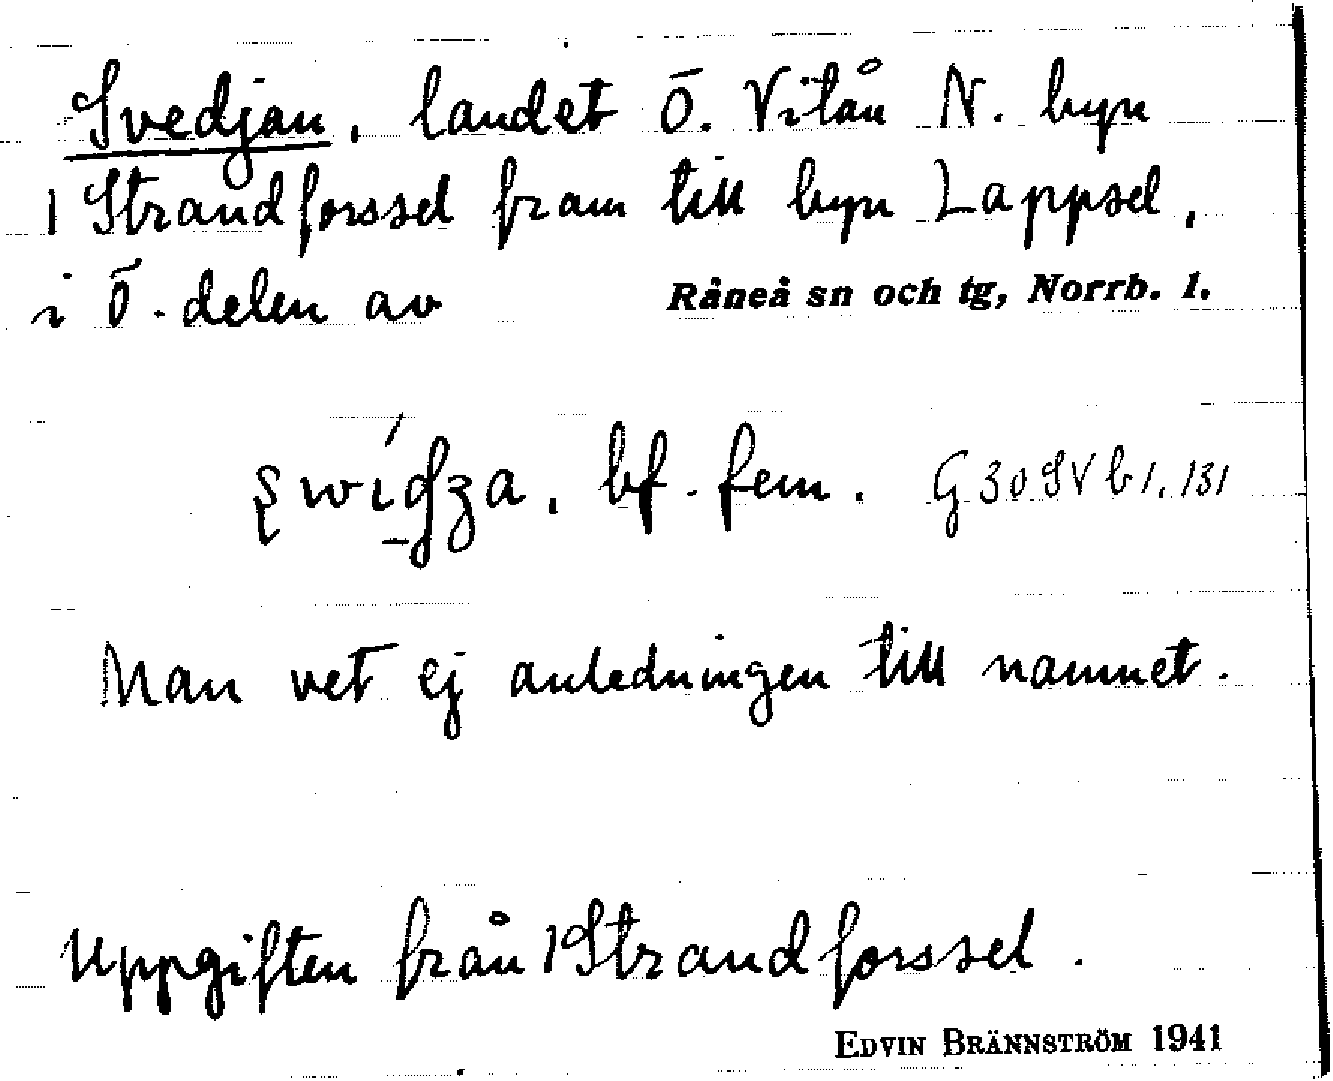 Svedjan, landet Ö. Vitån N. byn
1 Strandforssel fram till byn Lappsel,
i Ö. delen av Råneå sn och tg, Norrb. l.
bf. fem. G 30 SV b 1. 131
Man vet ej anledningen till namnet.
Uppgiften från 1 Strandforssel.
EDVIN BRÄNNSTRÖM 1941